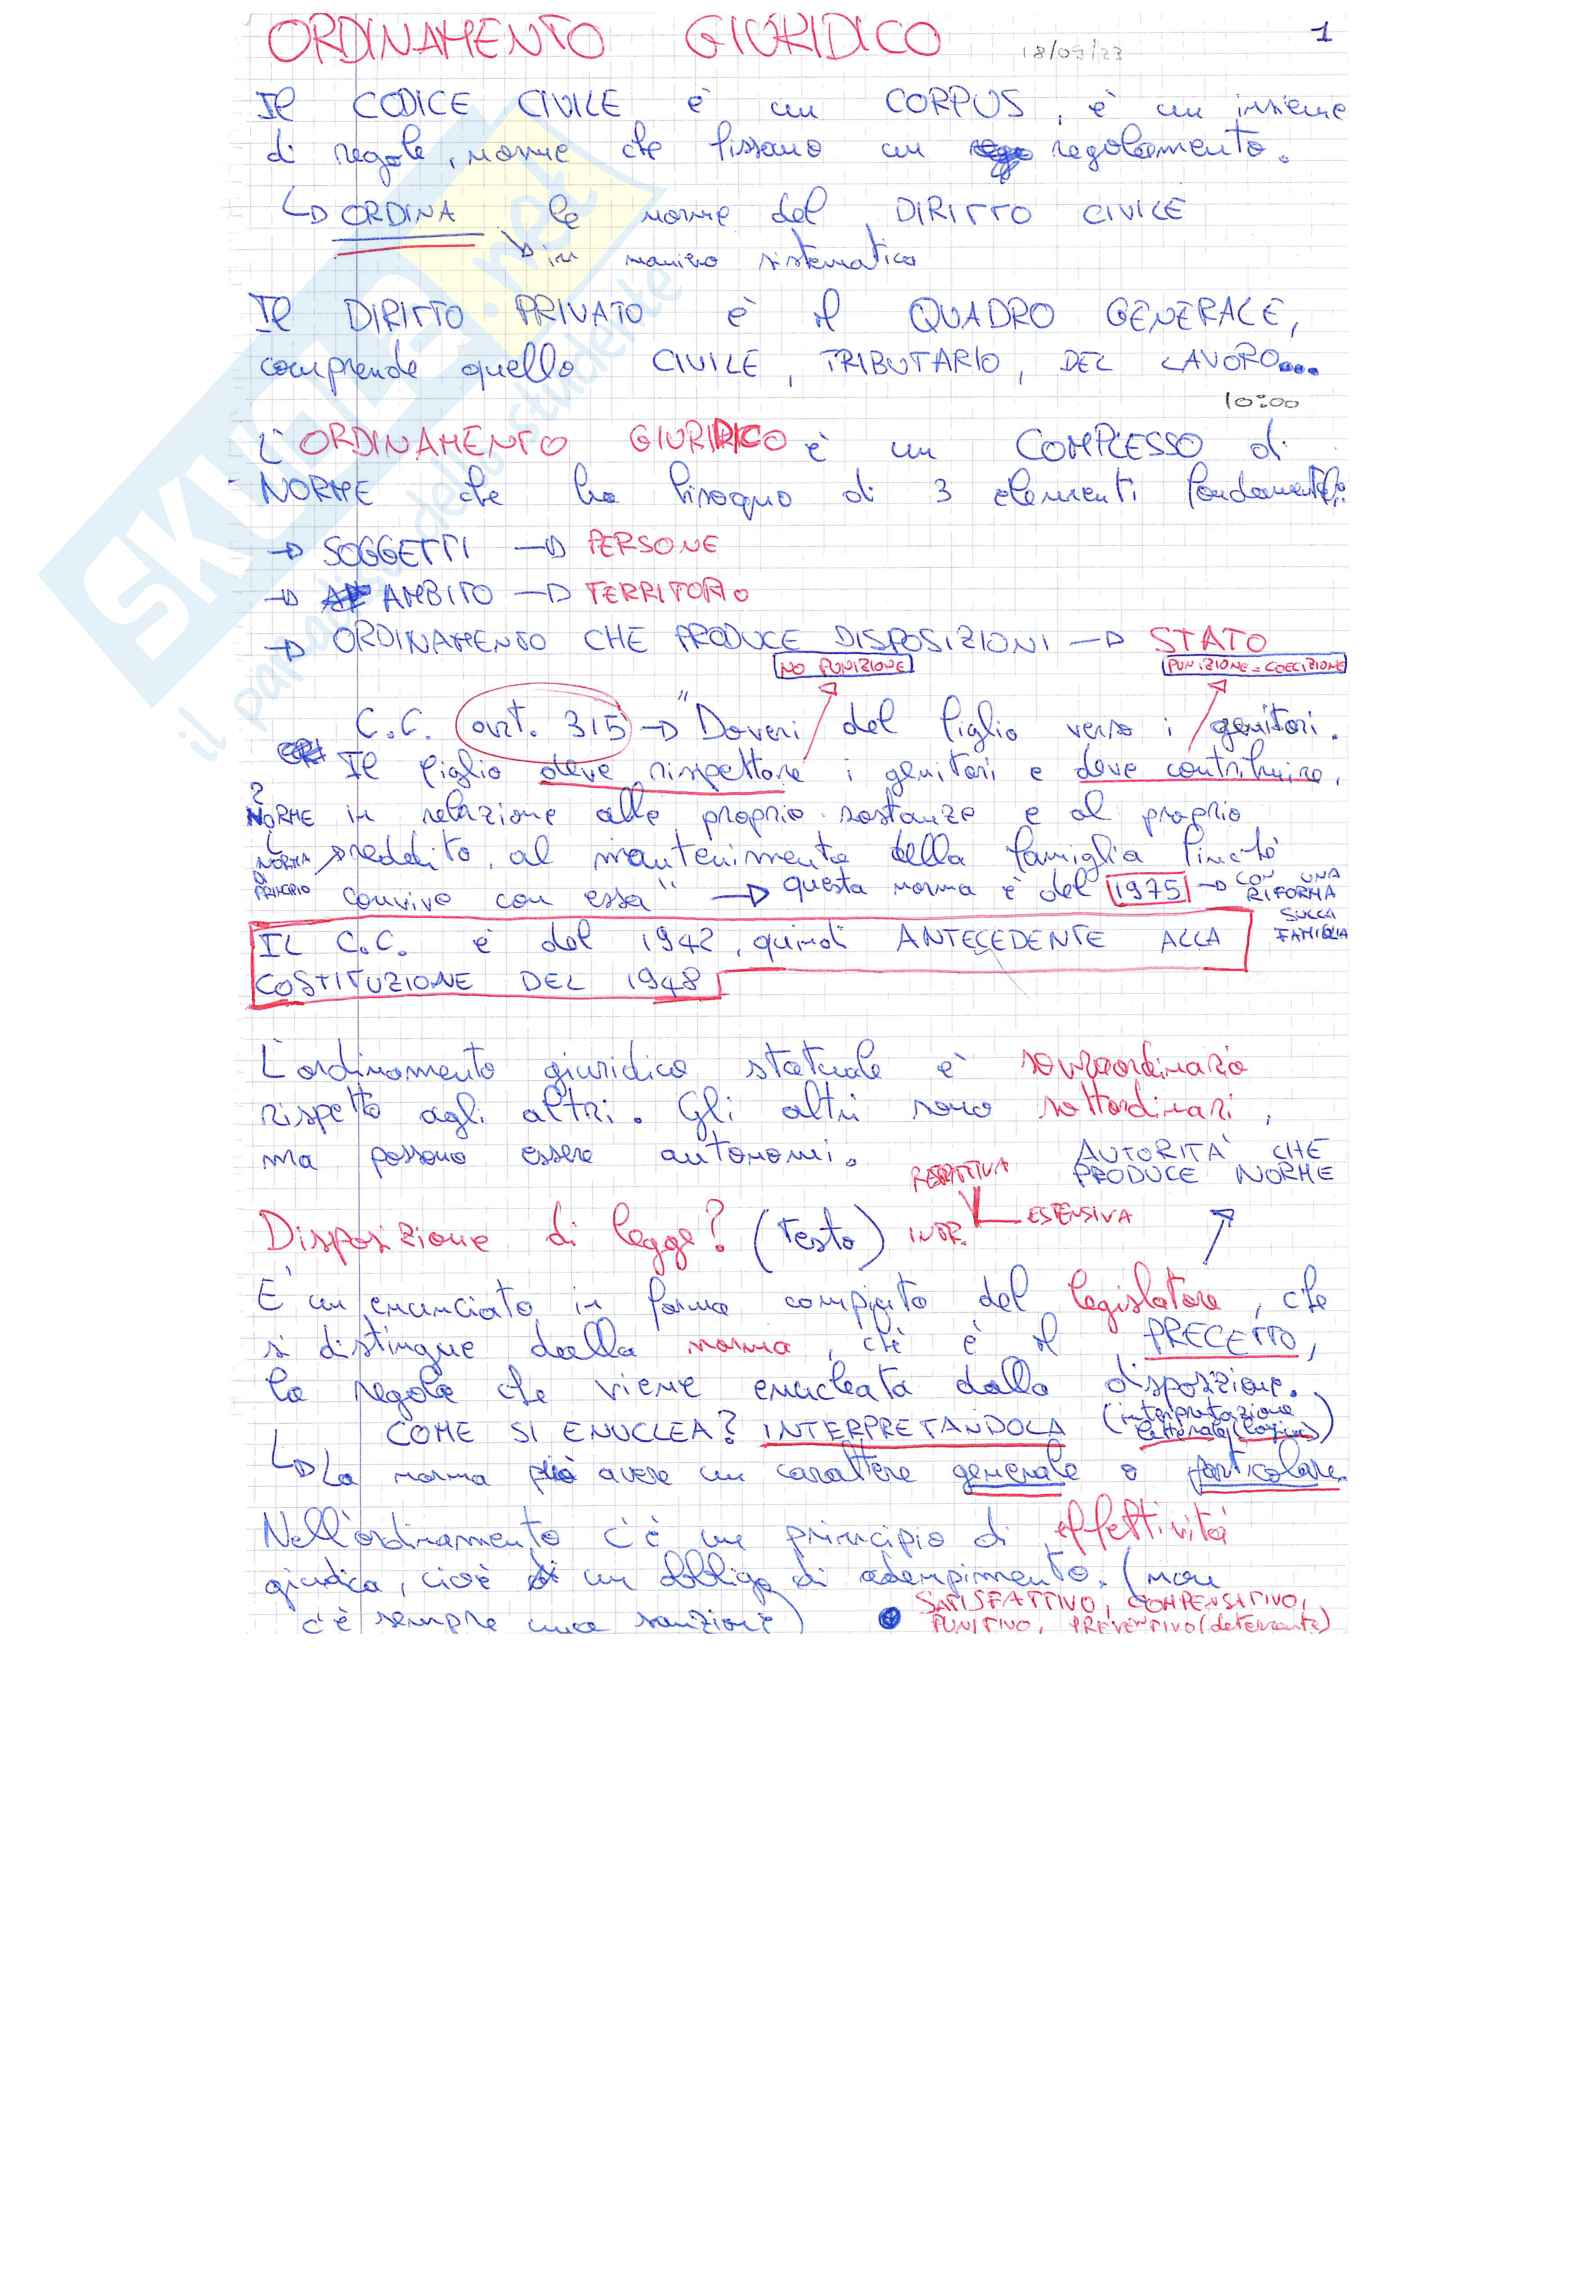 ORDINAMENTO GIURIDICO 18/09/23 1
Il CODICE CIVILE è un CORPUS, è un insieme
di regole, norme che fissano un regolamento.
ORDINA le norme del DIRITTO CIVILE
in maniera sistematica
Il DIRITTO PRIVATO è il QUADRO GENERALE,
comprende quello CIVILE, TRIBUTARIO, DEL LAVORO...
10:00
L'ORDINAMENTO GIURIDICO è un COMPLESSO di
NORME che ha bisogno di 3 elementi fondamentali:
→ SOGGETTI → PERSONE
→ AMBITO → TERRITORIO
→ ORDINAMENTO CHE PRODUCE DISPOSIZIONI → STATO
NO PUNIZIONE PUNIZIONE = COECIZIONE
C.C. art. 315 → "Doveri del figlio verso i genitori.
Il figlio deve rispettare i genitori e deve contribuire,
2 NORME in relazione alle proprie sostanze e al proprio
NORMA DI PRINCIPIO reddito, al mantenimento della famiglia finché
convive con essa" → questa norma è del 1975 → CON UNA RIFORMA SULLA FAMIGLIA
IL C.C. è del 1942, quindi ANTECEDENTE ALLA
COSTITUZIONE DEL 1948
L'ordinamento giuridico statuale è sovraordinario
rispetto agli altri. Gli altri sono sottordinari,
ma possono essere autonomi.
AUTORITÀ CHE PRODUCE NORME
Disposizione di legge? (testo) INTR. ESTENSIVA
È un enunciato in forma compiuta del legislatore, che
si distingue dalla norma, che è il PRECETTO,
la regola che viene enucleata dalla disposizione.
COME SI ENUCLEA? INTERPRETANDOLA (interpretazione letterale
La norma può avere un carattere generale o particolare.
Nell'ordinamento c'è un principio di effettività
giuridica, cioè un obbligo di adempimento. (non
c'è sempre una sanzione)
SATISFATTIVO, COMPENSATIVO,
PUNITIVO, PREVENTIVO (deterrente)
SKUOLA.net
il paradiso dello studente